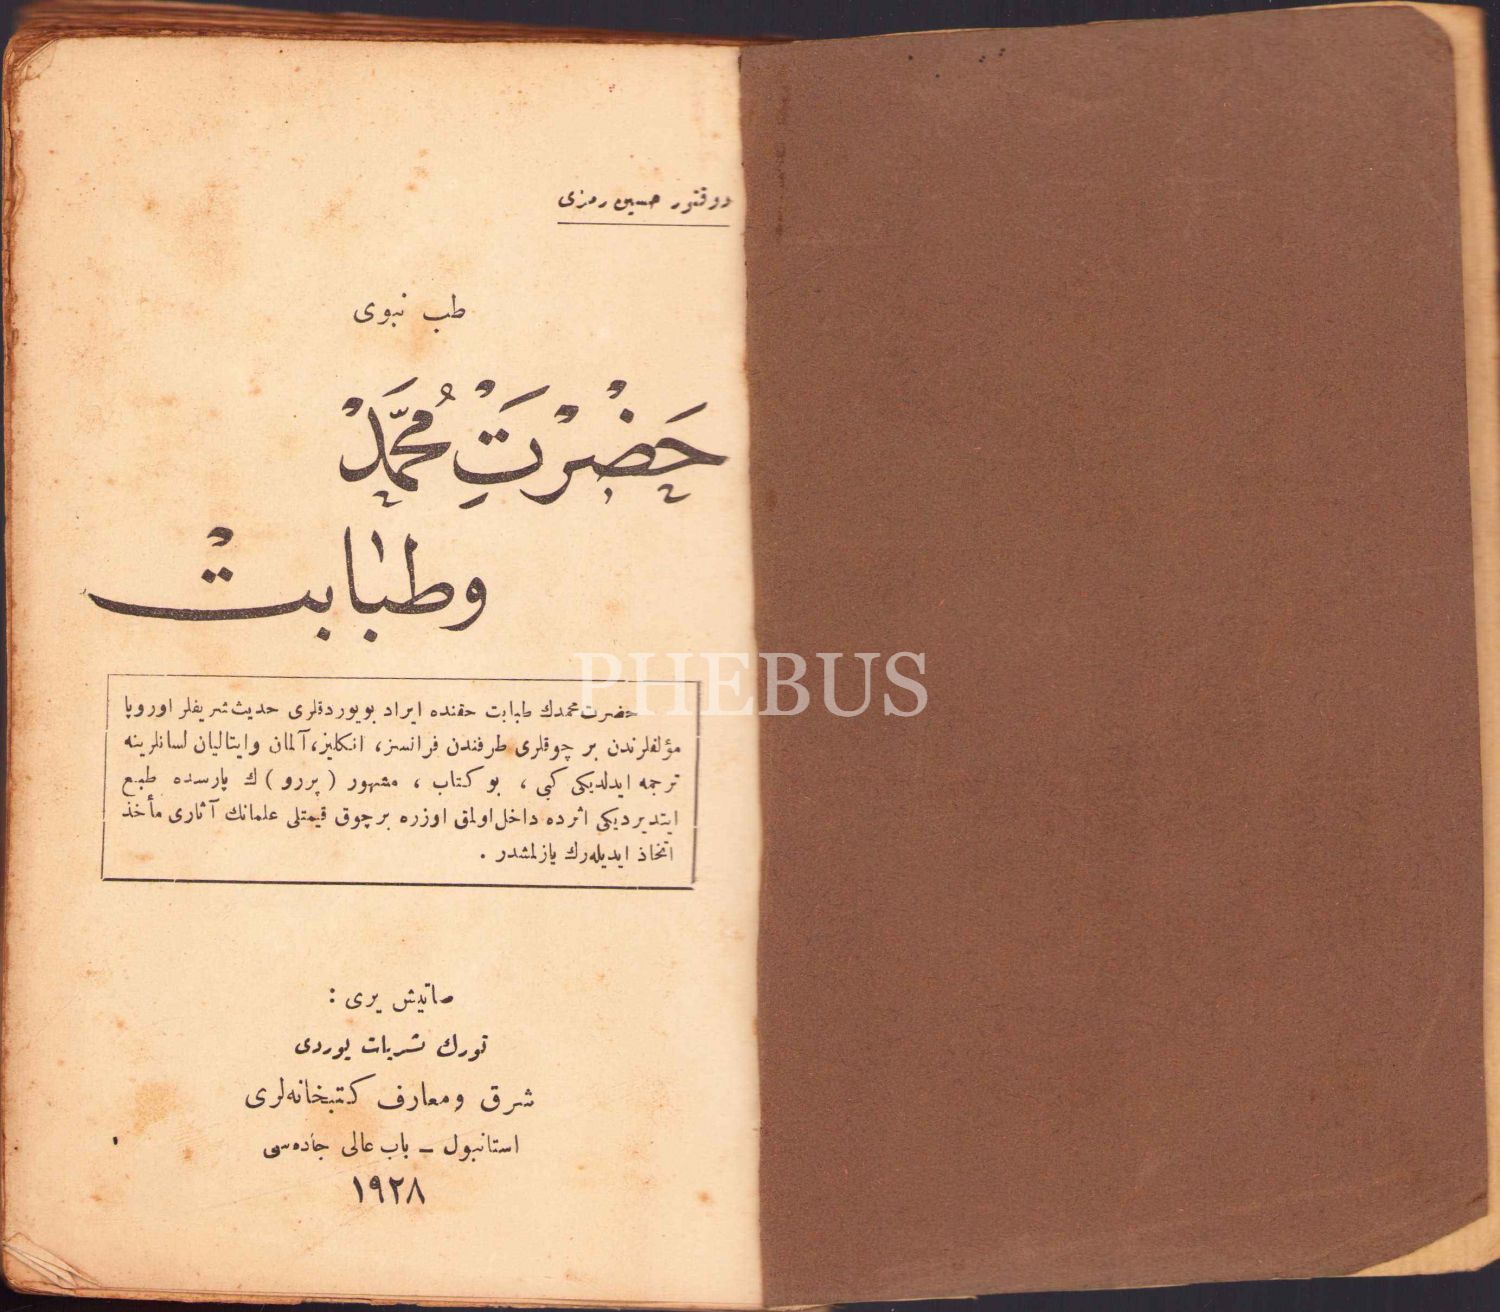 دوقتور حسين رمزى
طب نبوى
حَضْرَتِ مُحَمَّدْ
وطبابتْ
حضرت محمدك طبابت حقنده ايراد بويوردقلرى حديث شريفلر اوروپا
مؤلفلرندن بر چوقلرى طرفندن فرانسز، انكليز، آلمان وايتاليان لسانلرينه
ترجمه ايدلديكى كبى ، بو كتاب ، مشهور ( پررو ) ك پارسده طبع
ايتديرديكى اثرده داخل اولمق اوزره بر چوق قيمتلى علمانك آثارى مأخذ
اتخاذ ايديله‌رك يازلمشدر .
صاتيش يرى :
تورك نشريات يوردى
شرق ومعارف كتبخانه‌لرى
استانبول ــ باب عالى جاده‌سى
١٩٢٨
PHEBUS